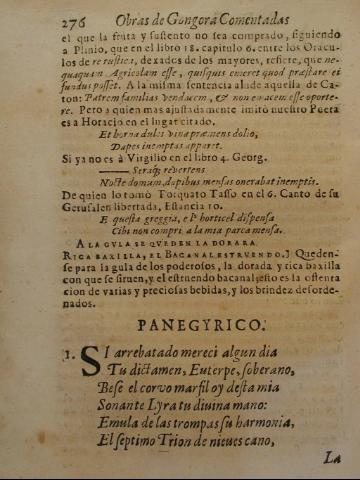 276 Obras de Gongora Comentadas
el que la fruta y sustento no sea comprado, siguiendo
a Plinio, que en el libro 18. capitulo 6. entre los Oracu-
los de re rustica, dexados de los mayores, refiere, que ne-
quaquam Agricolam esse, quisquis emeret quod præstare ei
fundus posset. A la misma sentencia alude aquella de Ca-
ton: Patrem familias vendacem, & non emacem esse oporte-
re. Pero a quien mas ajustadamente imitò nuestro Poeta
es a Horacio en el lugar citado.
Et horna dulci vina promens dolio,
Dapes inemptas apparet.
Si ya no es à Virgilio en el libro 4. Georg.
Seraq; revertens
Nocte domum, dapibus mensas onerabat inemptis.
De quien lo tomò Torquato Tasso en el 6. Canto de su
Gerusalen libertada, Estancia 10.
E questa greggia, e l' horticel dispensa
Cibi non compri a la mia parca mensa.
A LA GULA SE QUEDEN LA DORADA
RICA BAXILLA, EL BACANAL ESTRUENDO.] Queden-
se para la gula de los poderosos, la dorada y rica baxilla
con que se siruen, y el estruendo bacanal, esto es la ostenta
cion de varias y preciosas bebidas, y los brindez desorde-
nados.
PANEGYRICO.
1. SI arrebatado mereci algun dia
Tu dictamen, Euterpe, soberano,
Bese el corvo marfil oy desta mia
Sonante Lyra tu diuina mano:
Emula de las trompas su harmonia,
El septimo Trion de nieues cano,
La